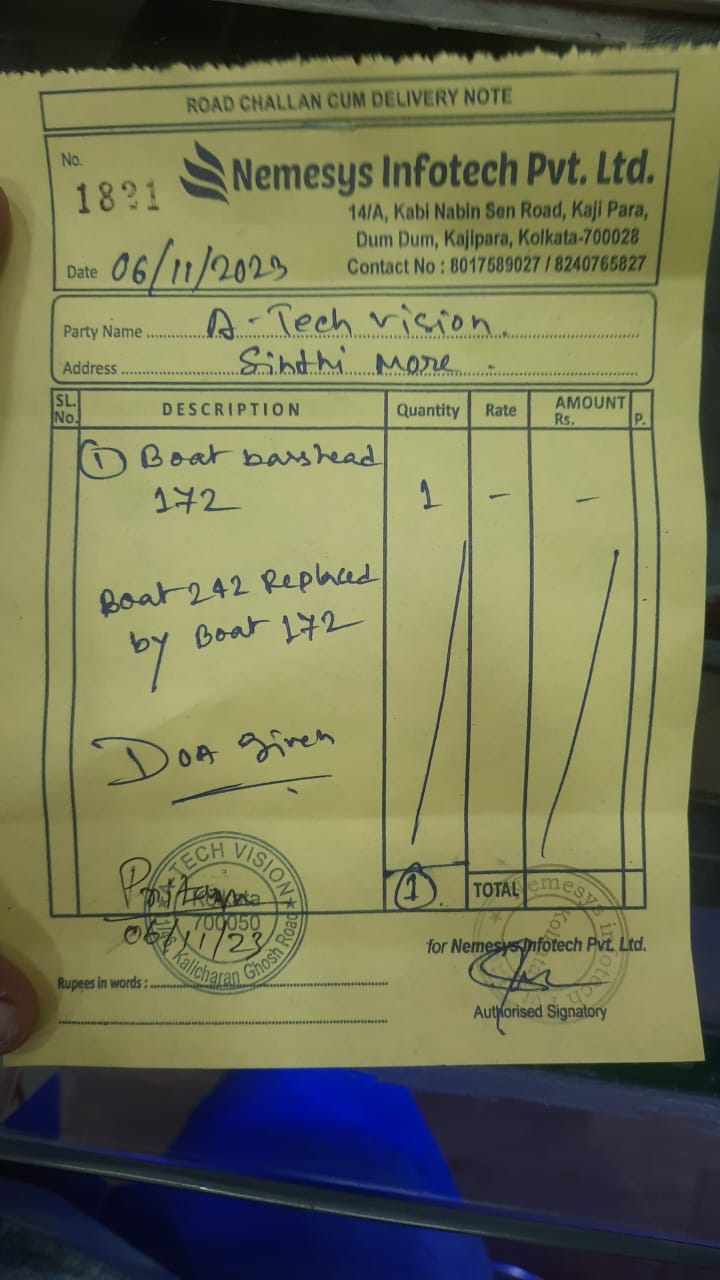 ROAD CHALLAN CUM DELIVERY NOTE
No.
Nemesys Infotech Pvt. Ltd.
14/A, Kabi Nabin Sen Road, Kaji Para,
Dum Dum, Kajipara, Kolkata-700028
Date 06/11/2023
Contact No : 8017589027 / 8240765827
Party Name A-Tech vision.
Address Sinthi More.
SL. No. DESCRIPTION Quantity Rate AMOUNT Rs. P.
① Boat basshead
172 1 - -
Boat 242 Replaced
by Boat 172
DOA given
TECH VISION
700050
Kalicharan Ghosh Road
06/11/23
1 TOTAL
Nemesys Infotech
for Nemesys Infotech Pvt. Ltd.
Rupees in words :
Authorised Signatory